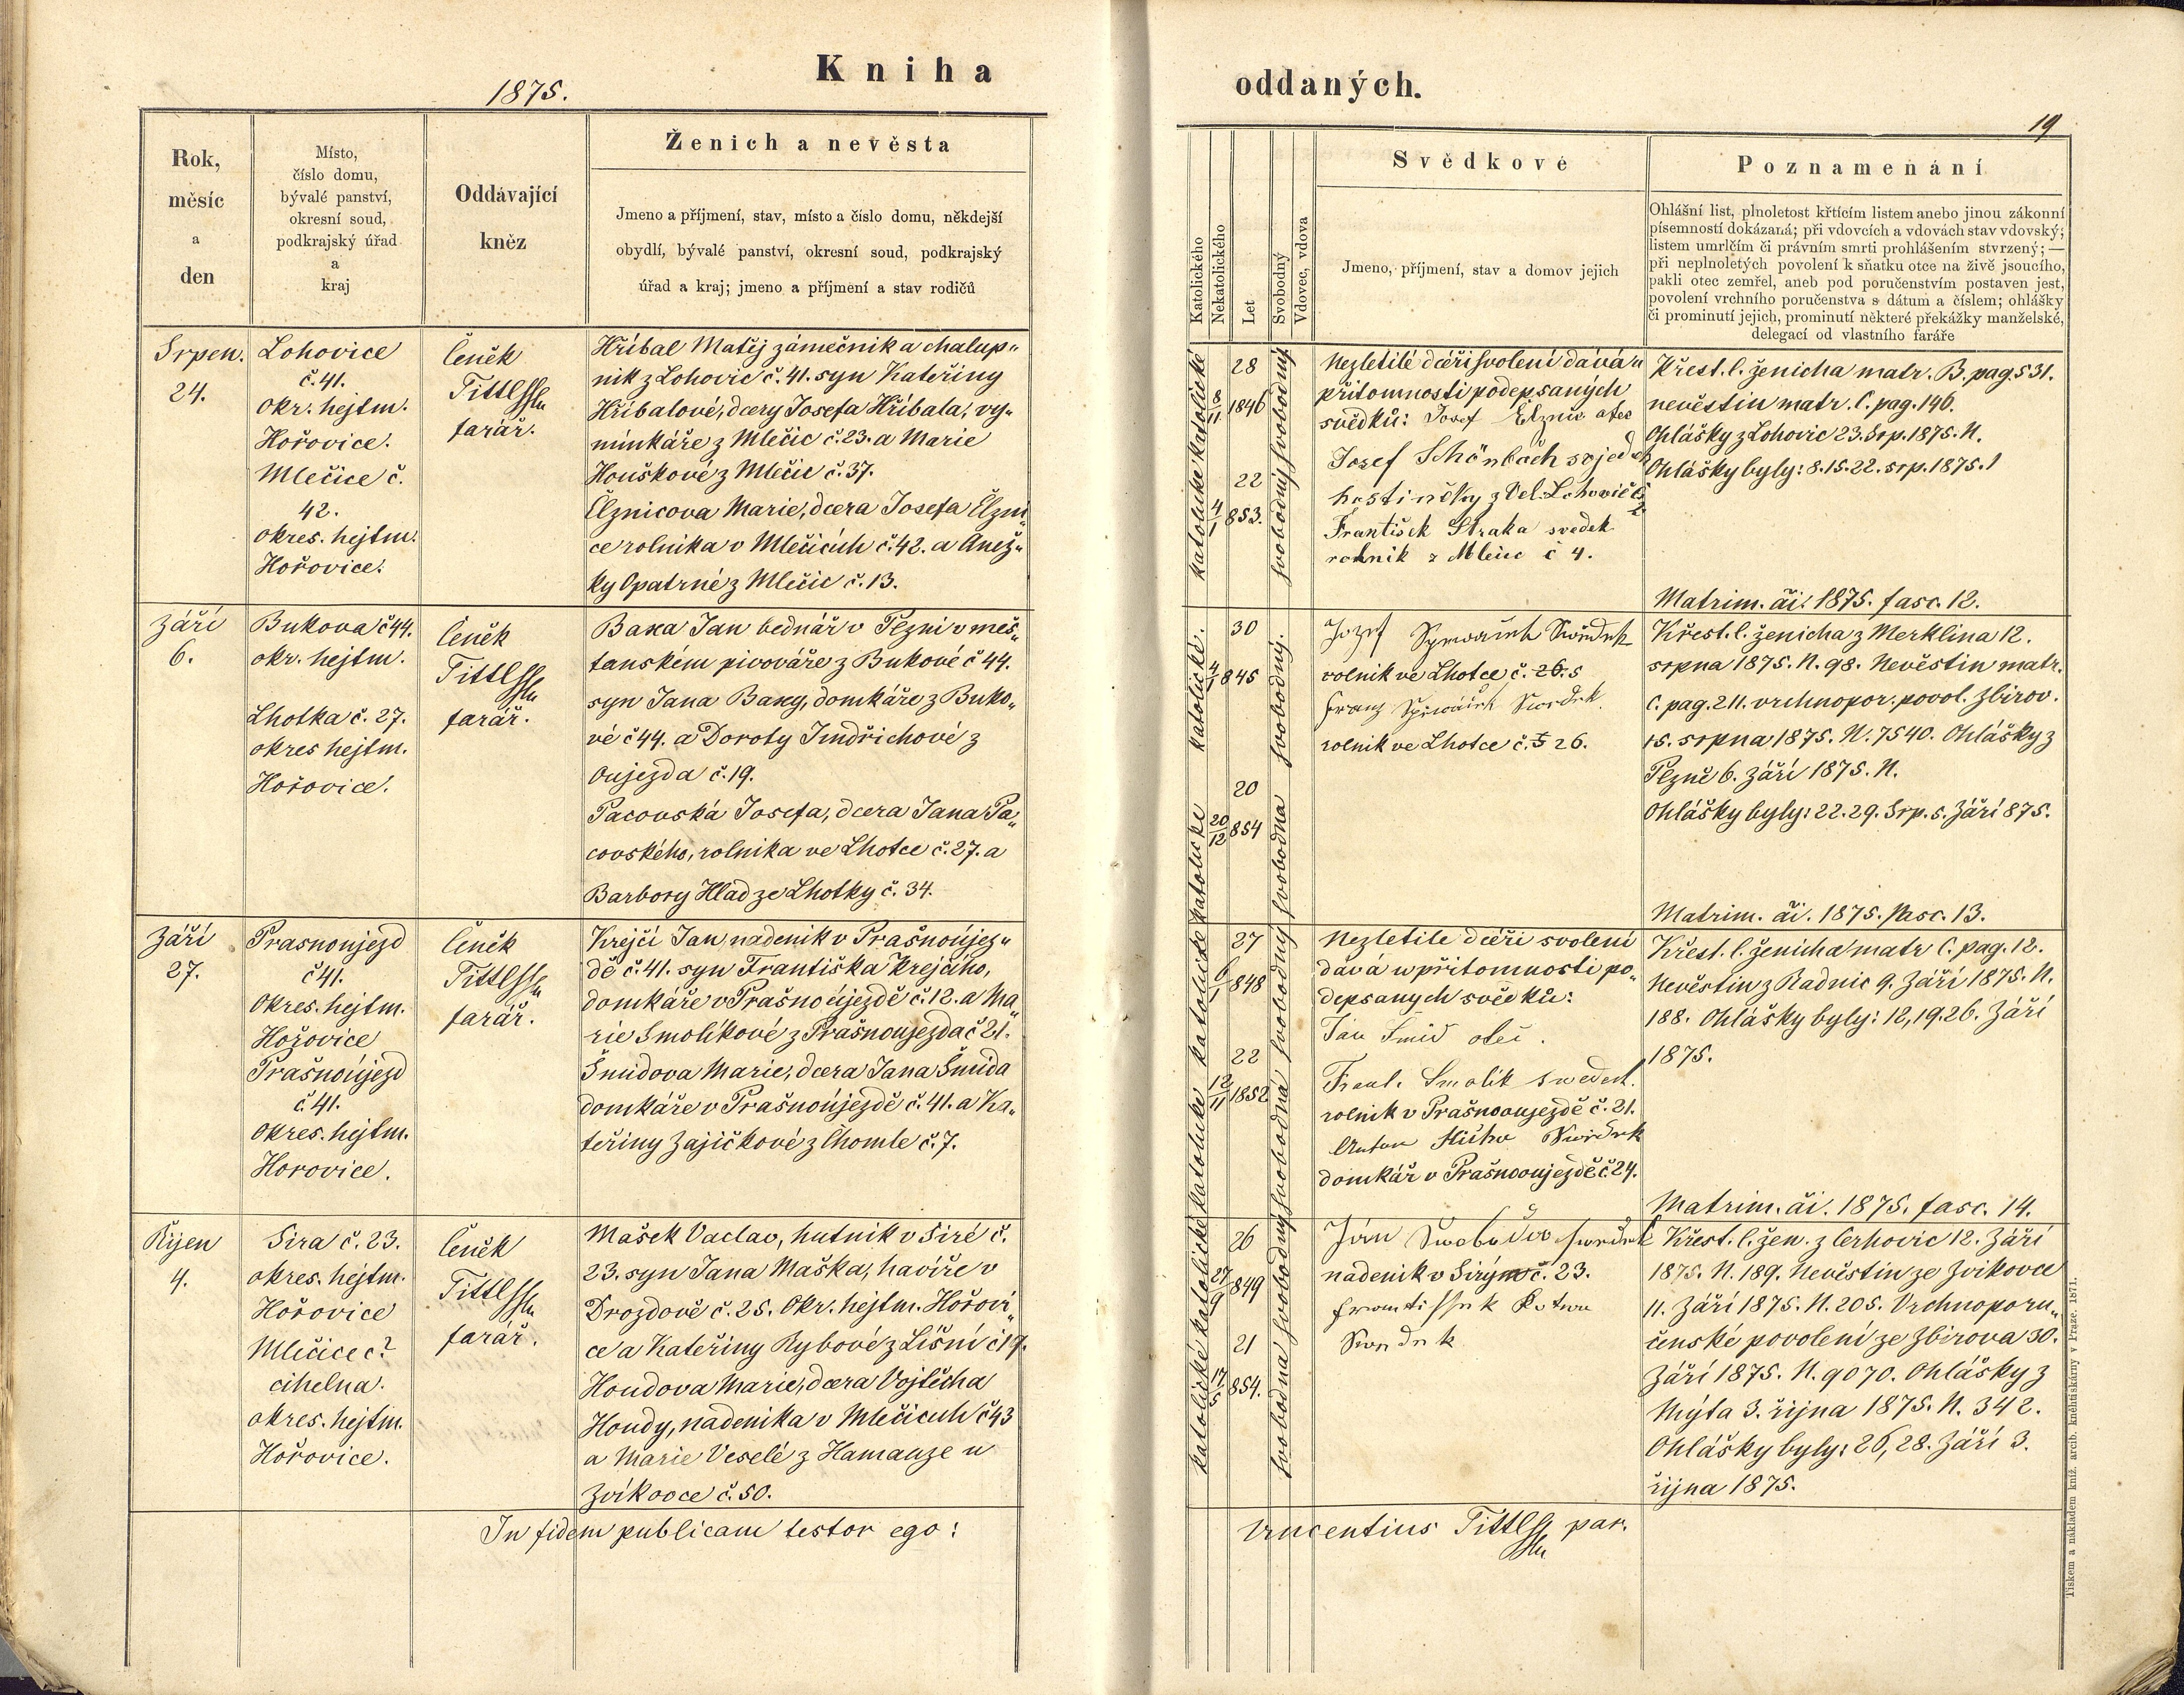 1875.
Kniha
Rok,
měsíc
a
den
Místo,
číslo domu,
bývalé panství,
okresní soud,
podkrajský úřad
a
kraj
Oddávající
kněz
Ženich a nevěsta
Jmeno a příjmení, stav, místo a číslo domu, někdejší
obydlí, bývalé panství, okresní soud, podkrajský
úřad a kraj; jmeno a příjmení a stav rodičů
Srpen.
24.
Lohovice
č. 41.
Okr. hejtm.
Hořovice.
Mlečice č.
42.
okres. hejtm.
Hořovice.
Čeněk
Tittl
farář.
Hříbal Matěj zámečnik a chalup„
nik z Lohovic č. 41. syn Kateřiny
Hříbalové, dcery Josefa Hříbala, vy„
minkáře z Mlečic č. 23. a Marie
Houškové z Mlečic č. 37.
Elznicova Marie, dcera Josefa Elzni„
ce rolníka v Mlečicích č. 42. a Anež„
ky Opatrné z Mlečic č. 13.
Září
6.
Bukova č 44.
okr. hejtm.
Lhotka č. 27.
okres hejtm.
Hořovice.
Čeněk
Tittl
farář.
Baxa Jan bednář v Plzni v měš„
tanském pivováře z Bukové č 44.
syn Jana Baxy, domkáře z Buko„
vé č 44. a Doroty Jindřichové z
Oujezda č. 19.
Pacovská Josefa, dcera Jana Pa„
covského, rolnika ve Lhotce č. 27. a
Barbory Hlad ze Lhotky č. 34.
Září
27.
Prasnoujezd
č 41.
Okres. hejtm.
Hořovice
Prašnoújezd
č. 41.
Okres. hejtm.
Horovice.
Čeněk
Tittl
farář.
Krejčí Jan nadenik v Prašnoújez„
dě č. 41. syn Františka Krejčího,
domkáře v Prašnoújezdě č. 12. a Ma„
rie Smolíkové z Prašnoujezda č 21.
Šmidova Marie, dcera Jana Šmida
domkáře v Prašnoújezdě č. 41. a Ka„
teřiny Zajíčkové z Chomle č. 7.
Říjen
4.
Sira č. 23.
okres. hejtm.
Hořovice
Mlečice č?
cihelna.
okres. hejtm.
Hořovice.
Čeněk
Tittl
farář.
Mašek Vaclav, hutnik v Siré č.
23. syn Jana Maška, havíře v
Drozdově č. 25. Okr. hejtm. Hořovi„
ce a Kateřiny Rybové z Líšní č 19.
Houdova Marie, dcera Vojtěcha
Houdy, nadenika v Mlečicích č 43
a Marie Veselé z Hamauze u
Zvíkovce č. 50.
In fidem publicam testor ego:
oddaných.
19
Katolického
Nekatolického
Let
Svobodný
Vdovec, vdova
Svědkové
Jmeno, příjmení, stav a domov jejich
Poznamenání
Ohlášní list, plnoletost křtícím listem anebo jinou zákonní
písemností dokázaná; při vdovcích a vdovách stav vdovský;
listem umrlčím či právním smrti prohlášením stvrzený; —
při neplnoletých povolení k sňatku otce na živě jsoucího,
pakli otec zemřel, aneb pod poručenstvím postaven jest,
povolení vrchního poručenstva s dátum a číslem; ohlášky
či prominutí jejich, prominutí některé překážky manželské,
delegací od vlastního faráře
katolické
28
1846
svobodný
katolické
22
4/1 853.
svobodný
Nezletilé dceři svolení dává u
přítomnosti podepsaných
svědků: Josef Elznic otec
Josef Schönbach svjedek
hostinčky z Vel. Lohovič č 2
František Straka svedek
rolník z Mlečic č 4.
Křest. l. ženicha matr. B. pag. 531.
nevěstin matr. C. pag. 146.
Ohlášky z Lohovic 23. Srp. 1875. N.
Ohlášky byly: 8. 15. 22. srp. 1875.
Matrim. či. 1875. fasc. 12.
katolické.
30
4/1 845
svobodný.
katolické
20
20/12 854
svobodna
Jozef
rolnik ve Lhotce č. 26. 5
Franz
rolnik ve Lhotce č. 5 26.
Křest. l. ženicha z Merklina 12.
srpna 1875. N. 98. Nevěstin matr.
C. pag. 211. vrchnopor. povol. Zbirov.
15. srpna 1875. N. 7540. Ohlášky z
Plzně 6. Září 1875. N.
Ohlášky byly: 22. 29. Srp. 5. Září 875.
Matrim. či. 1875. fasc. 13.
katolické
27
6/1 848
svobodný
katolické
22
12/11 1852
svobodná
Nezletile dceři svolení
dává w přitomnosti po„
depsanych svědků:
Jan Šmid otec.
Frant. Smolik swedek.
rolnik v Prašnooujezdě č. 21.
Anton
domkář v Prašnooujezdě č. 24.
Křest. l. ženicha matr C. pag. 12.
Nevěstin z Radnic 9. Září 1875. N.
188. Ohlášky byly: 12, 19. 26. Září
1875.
Matrim. či. 1875. fasc. 14.
katolické
26
27/9 849
svobodný
katolické
21
854.
svobodna
Ján Swoboda swědek
nadenik v Sirým č. 23.
Křest. l. žen. z Cerhovic 12. Září
1875. N. 189. Nevěstin ze Zvikovce
11. Září 1875. N. 205. Vrchnoporu„
čenské povolení ze Zbirova 30.
Září 1875. N. 9070. Ohlášky z
Mýta 3. října 1875. N. 342.
Ohlášky byly: 26, 28. Září 3.
října 1875.
Vincentius Tittl par.
Tiskem a nákladem kníž. arcib. kněhtiskárny v Praze. 1871.